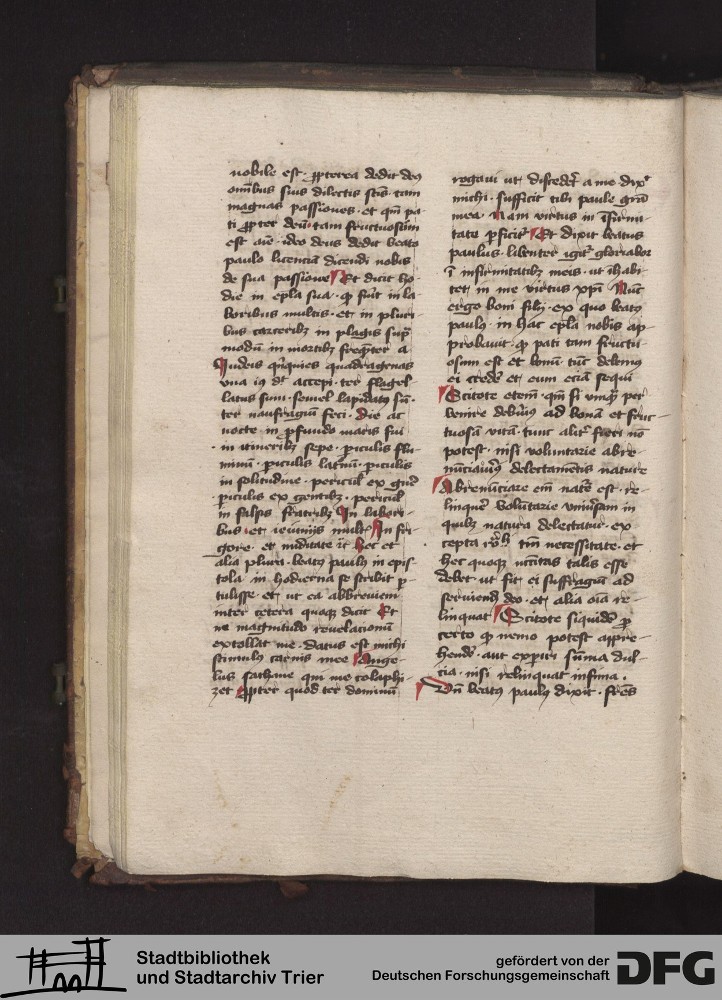 nobile est · ꝓpterea dedit deꝰ
om̄ibus suis dilectis sc̄is tam
magnas passiones · et qm̄ pa-
ti ꝓpter deū · tam fructuosum
est aīe · ideo deus dedit beato
paulo licenciā dicendi nobis
de sua passione Et dicit ho-
die in ep̄la sua · ꝙ fuit in la-
boribus multis · et in pluri-
bus carceribꝫ in plagis supͣ
modū in mortibꝫ freqn̄ter a
Iudeis qͥnquies quadragenas
vna
accepi · ter flagel-
latus sum · semel lapidatꝰ sū ·
ter naufragiū feci · Die ac
nocte in ꝓfundo maris fui
in itineribꝫ sepe · ꝑiculis flu-
minū · ꝑiculis latronū · ꝑiculis
in solitudine · pericul̓ ex gn̄e
ꝑiculis ex gentibꝫ · pericul̓
in falsis fratribꝫ In labori-
bus · et ieiunijs mult̓ In fri-
gore · et nuditate ⁊c̄ hec et
alia plura · beatꝰ paulꝰ in epis-
tola in hodierna se scribit ꝑ-
tulisse · et ut ea abbreviem
inter cetera quoqꝫ dicit Et
ne magnitudo revelacionū
extollat me · datus est michi
stimulꝰ carnis mee Ange-
lus sathane qui me colaphi-
zet ꝓpter quod ter dominū
rogavi ut discedeͬt a me · dixͭ
michi · sufficit tibi paule grā
mea Nam virtus in īfirmi-
tate ꝑficitͬ Et dixit beatus
paulus · libenter igitͬ gloriabor
ī infirmitatibꝫ meis · ut īhabi-
tet in me virtus xp̄i Nūc
ergo boni filij · ex quo beatꝰ
paulꝰ · in hac ep̄la nobis ap-
probauit · ꝙ pati tam fructu-
osum est et bonū · tūc debemꝰ
ei crede͛ et eum eciā sequi
Scitote etem̄ · qm̄ si vnqͣꝫ per
venire debemꝰ ad bonā et fruc-
tuosā vitā · tunc alit͛ fieri nō
potest · nisi voluntarie abre-
nūciauīꝰ delectamētis nature
Abrenūciare em̄ nat͛e est · re-
linque͛ volūtarie vniūsam in
quibꝫ natura delectatur · ex-
cepta
tm̄ necessitate · et
hec quoqꝫ nccītas talis esse
debet ut sit ei suffragiū ad
seruiend̄ deo · et alia oīa re-
linquat Scitote siquidē ꝓ
certo ꝙ nemo potest appre-
hende͛ · aut expͥri sūma dul-
cia · nisi relinquat infima ·
Vn̄ beatꝰ paulꝰ dixit · fr̄es
Stadtbibliothek
und Stadtarchiv Trier
gefördert von der
Deutschen Forschungsgemeinschaft
DFG